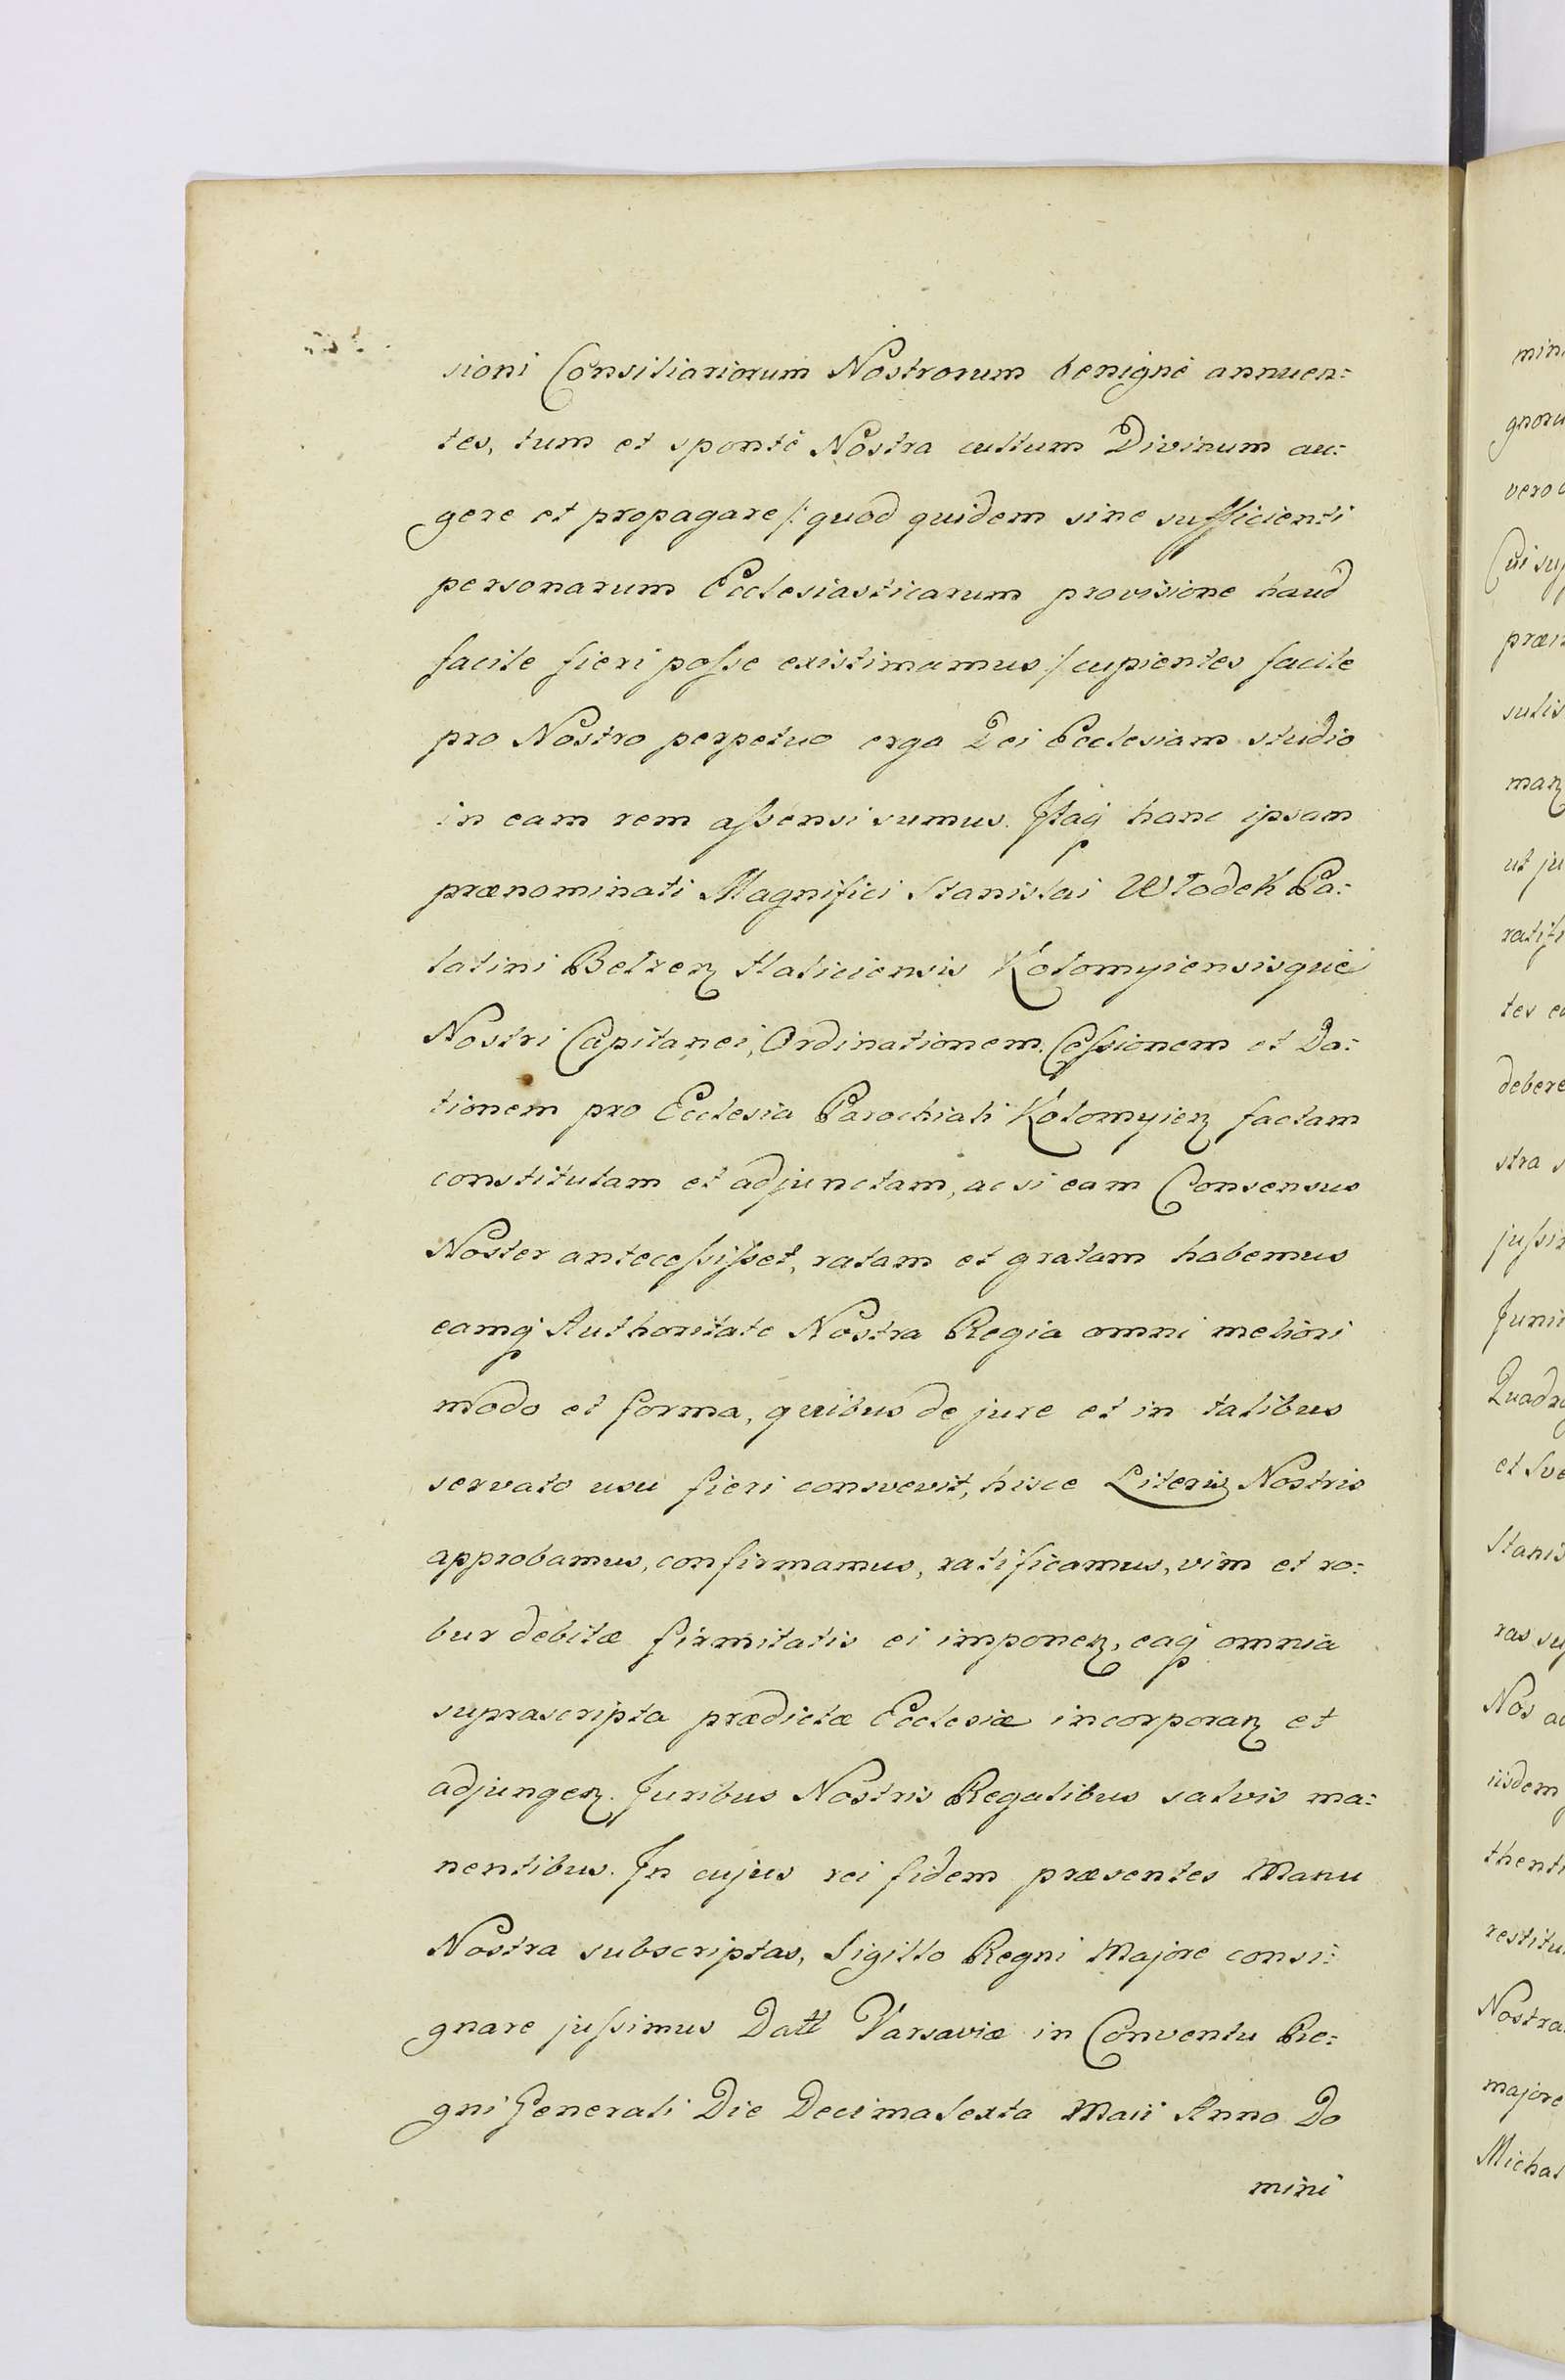 sioni Consiliariorum Nostrorum benignè annuen:
tes, tum et spontè Nostra cultum Divinum au:
gere et propagare /: quod quidem sine sufficienti
personarum Ecclesiasticarum provisione haud
facile fieri poſse existimamus :/ cupientes facile
pro Nostro perpetuo erga Dei Ecclesiam studio
in eam rem aſsensi sumus. Itaq hanc ipsam
prænominati Magnifici Stanislai Wlodek Pa:
latini Belzen Haliciensis Kolomyiensisquè
Nostri Capitanei, Ordinationem. Ceſsionem et Do:
tionem pro Ecclesia Parochiali Kolomyien factam
constitutam et adjunctam, ac si eam Consensus
Noster anteceſsiſset, ratam et gratam habemus
eamq Authoritate Nostra Regia omni meliori
modo et forma, quibus de jure et in talibus
servato usu fieri consvevit, hisce Literis Nostris
approbamus, confirmamus, ratificamus, vim et ro:
bur debitæ firmitatis ei imponen, eaq omnia
suprascripta prædictæ Ecclesiæ incorporan et
adjungen. Juribus Nostris Regalibus salvis ma:
nentibus. In cujus rei fidem præsentes Manu
Nostra subscriptas, Sigillo Regni Majore consi:
gnare juſsimus Datt Varsaviæ in Conventu Re:
gni Generali Die Decima sexta Maii Anno Do
mini